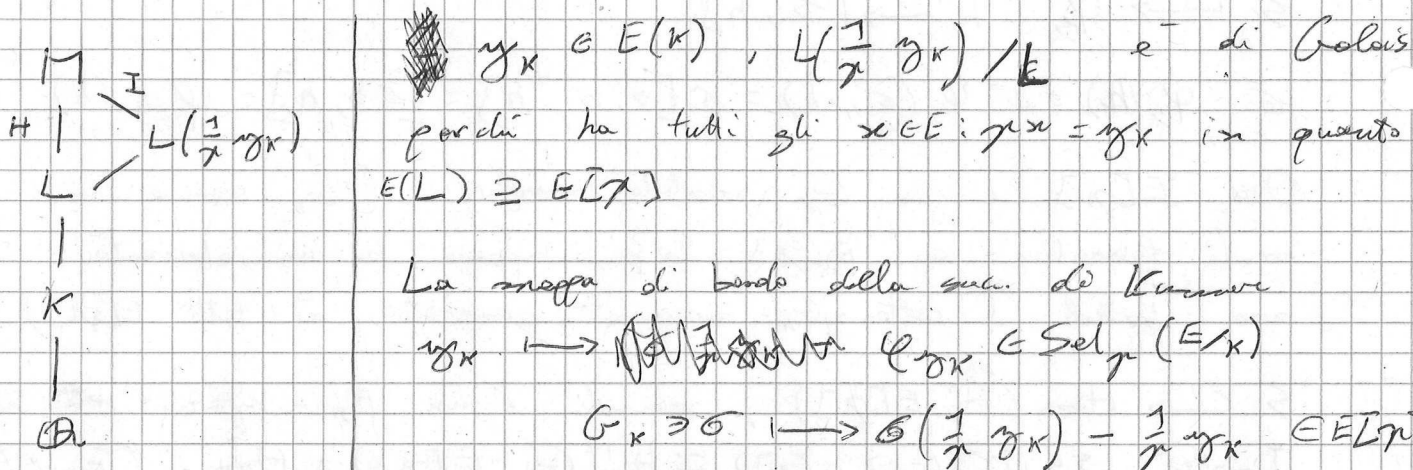 M
I
H
L(1/p y_K)
L
K
Q
y_K ∈ E(K), L(1/p y_K)/L è di Galois
perché ha tutti gli x ∈ E : px = y_K in quanto
E(L) ⊇ E[p]
La mappa di bordo della succ. di Kummer
y_K ⟼ φ_{y_K} ∈ Sel_p(E/K)
G_K ∋ σ ⟼ σ(1/p y_K) - 1/p y_K ∈ E[p]